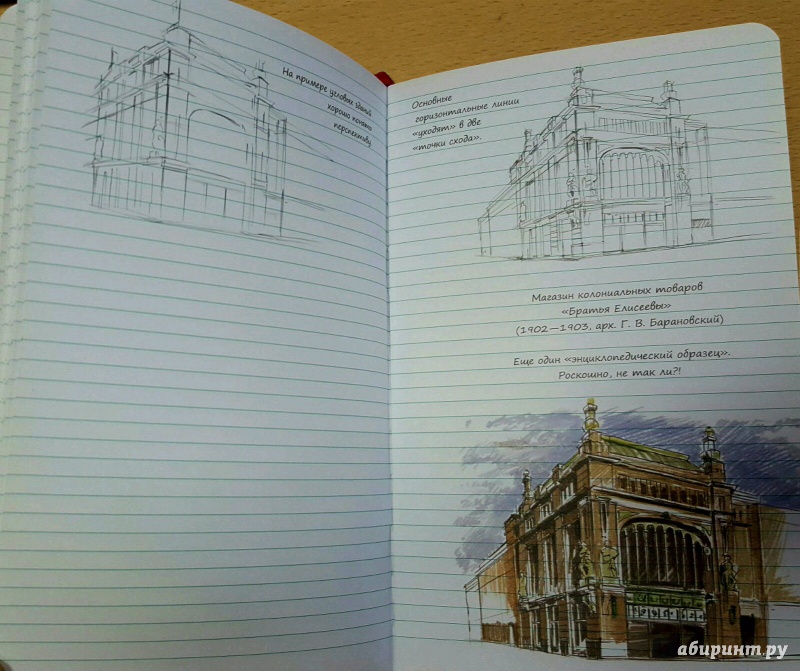 На примере угловых зданий
хорошо понятна
перспектива
Основные
горизонтальные линии
«уходят» в две
«точки схода».
Магазин колониальных товаров
«Братья Елисеевы»
(1902—1903, арх. Г. В. Барановский)
Еще один «энциклопедический образец».
Роскошно, не так ли?!
абиринт.ру